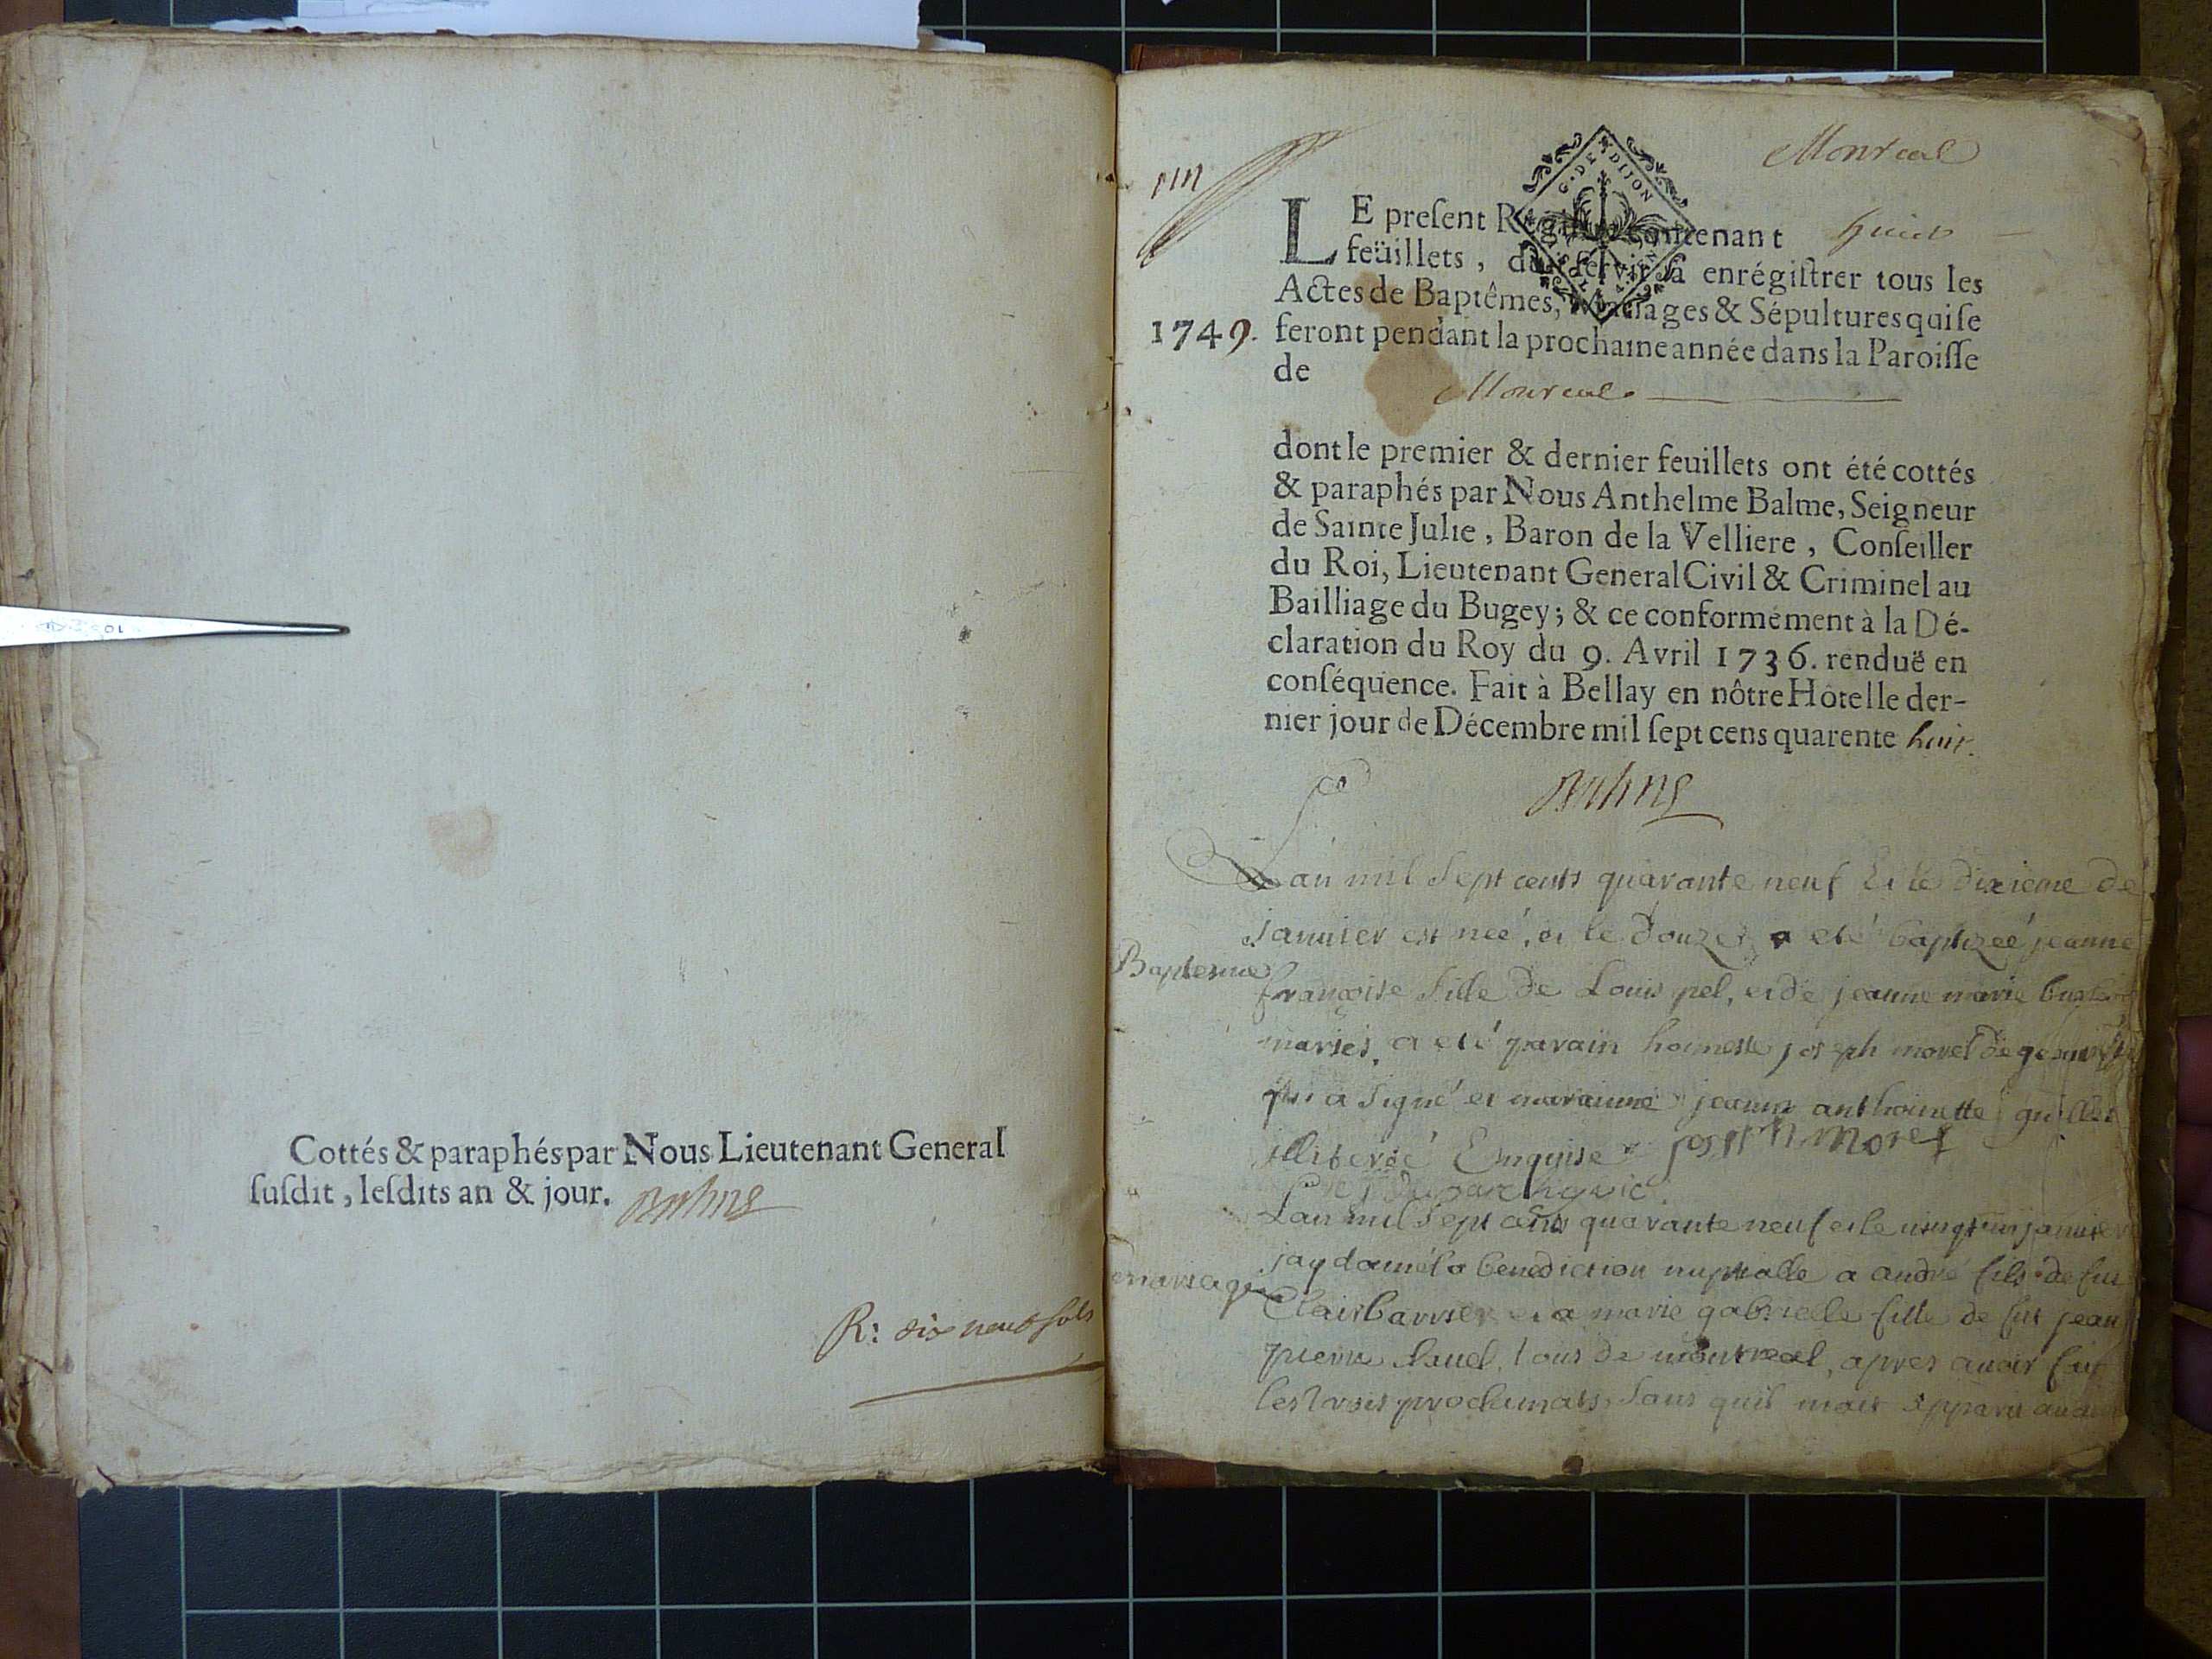 Cottés & paraphés par Nous Lieutenant General
ſuſdit, leſdits an & jour. Balme
R: dix neuf sols
Montreal
G. DE DIJON
LE preſent Regiſtre contenant huict
feüillets, doit ſervir à enrégiſtrer tous les
Actes de Baptêmes, Mariages & Sépultures qui ſe
1749. feront pendant la prochaine année dans la Paroiſſe
de Montreal
dont le premier & dernier feuillets ont été cottés
& paraphés par Nous Anthelme Balme, Seigneur
de Sainte Julie, Baron de la Velliere, Conſeiller
du Roi, Lieutenant General Civil & Criminel au
Bailliage du Bugey; & ce conformément à la Dé-
claration du Roy du 9. Avril 1736. renduë en
conſéquence. Fait à Bellay en nôtre Hôtel le der-
nier jour de Décembre mil ſept cens quarente huit.
Balme
Lan mil sept cents quarante neuf et le dixieme de
janvier est neé, et le douze a eté baptizeé jeanne
Baptesme
françoise fille de Louis pel, et de jeanne marie
mariés, a eté parain honneste joseph morel de
qui a signé et maraine jeanne anthoinette
illiterée Enquise joseph Morel
Lan mil sept cents quarante neuf et le vingt un janvier
jay donné la benediction nuptialle a andré fils de fut
mariage
Clair barrier et a marie gabrielle fille de fut jean
pierre tous de montreal, apres avoir fait
les trois proclamats, sans quil mait apparu